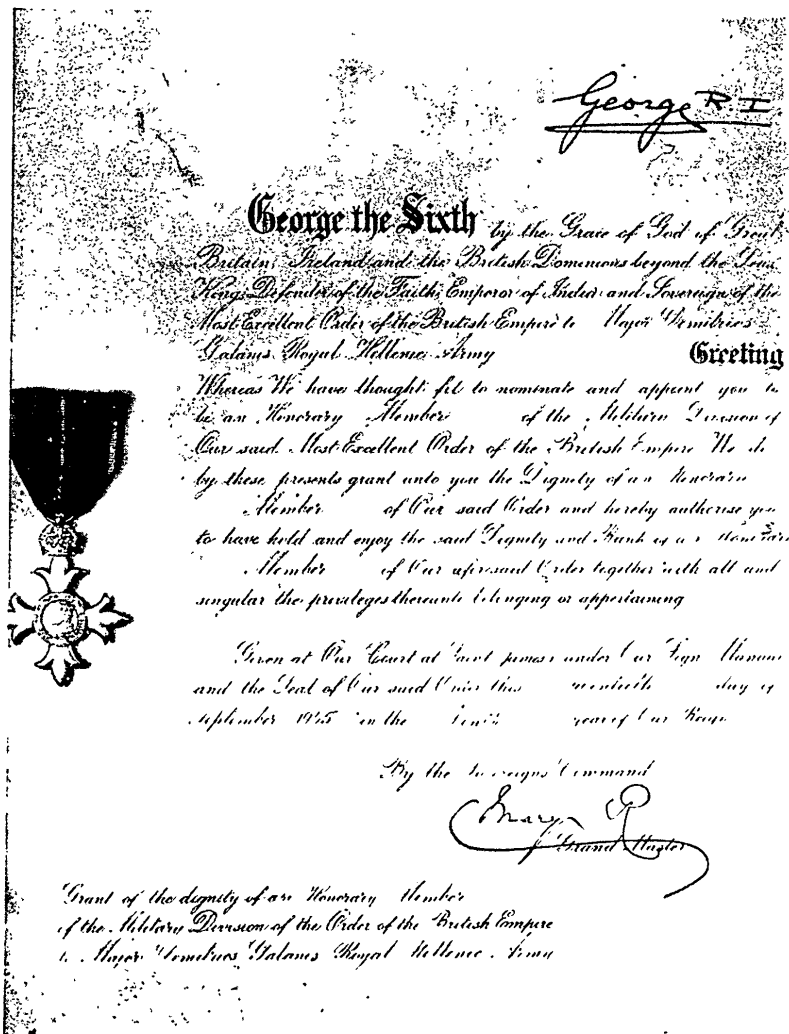 George R. I
George the Sixth by the Grace of God of Great
Britain, Ireland and the British Dominions beyond the Seas
King, Defender of the Faith, Emperor of India and Sovereign of the
Most Excellent Order of the British Empire to Major Demitrios
Galanis Royal Hellenic Army Greeting
Whereas We have thought fit to nominate and appoint you to
be an Honorary Member of the Military Division of
Our said Most Excellent Order of the British Empire We do
by these presents grant unto you the Dignity of an Honorary
Member of Our said Order and hereby authorise you
to have hold and enjoy the said Dignity and Rank of an Honorary
Member of Our aforesaid Order together with all and
singular the privileges thereunto belonging or appertaining
Given at Our Court at Saint James's under Our Sign Manual
and the Seal of Our said Order this day of
September 1945 in the year of Our Reign
By the Sovereign's Command
Mary R
Grand Master
Grant of the dignity of an Honorary Member
of the Military Division of the Order of the British Empire
to Major Demitrios Galanis Royal Hellenic Army